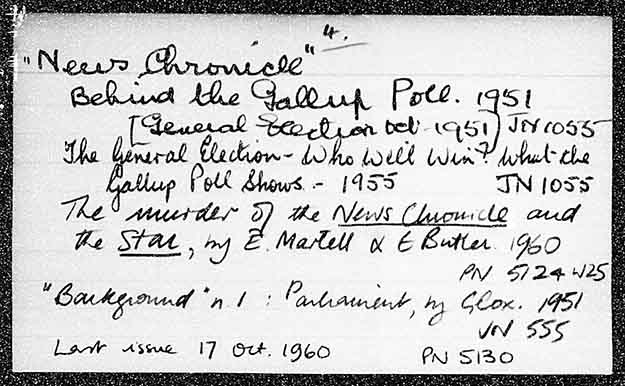 4.
"News Chronicle"
Behind the Gallup Poll. 1951
[General Election Oct. 1951] JN 1055
The General Election - Who Will Win? What the
Gallup Poll Shows. - 1955 JN 1055
The murder of the News Chronicle and
the Star, by E. Martell & E Butler. 1960
PN 5124 W25
"Background" n. 1 : Parliament, by Glox. 1951
JN 555
Last issue 17 Oct. 1960 PN 5130